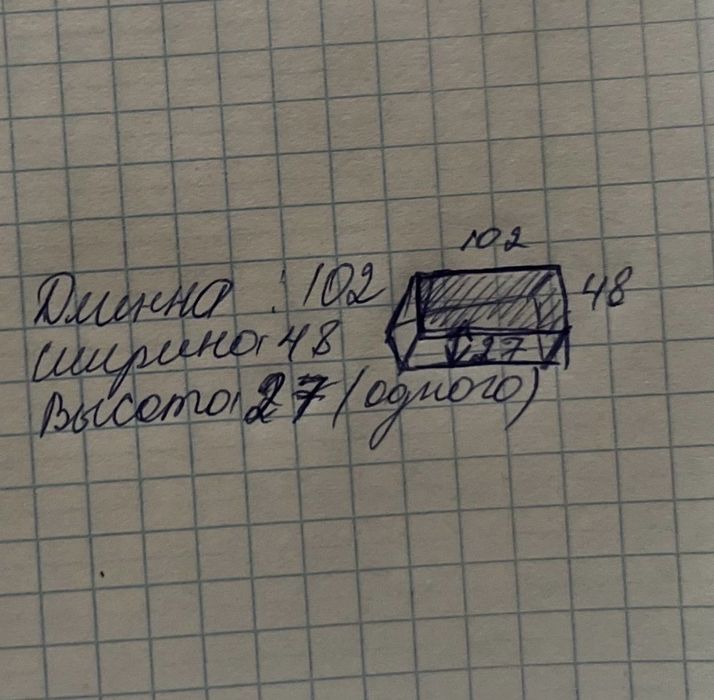 102
Длинна : 102
48
ширина: 48
27
Высота: 27 (одного)